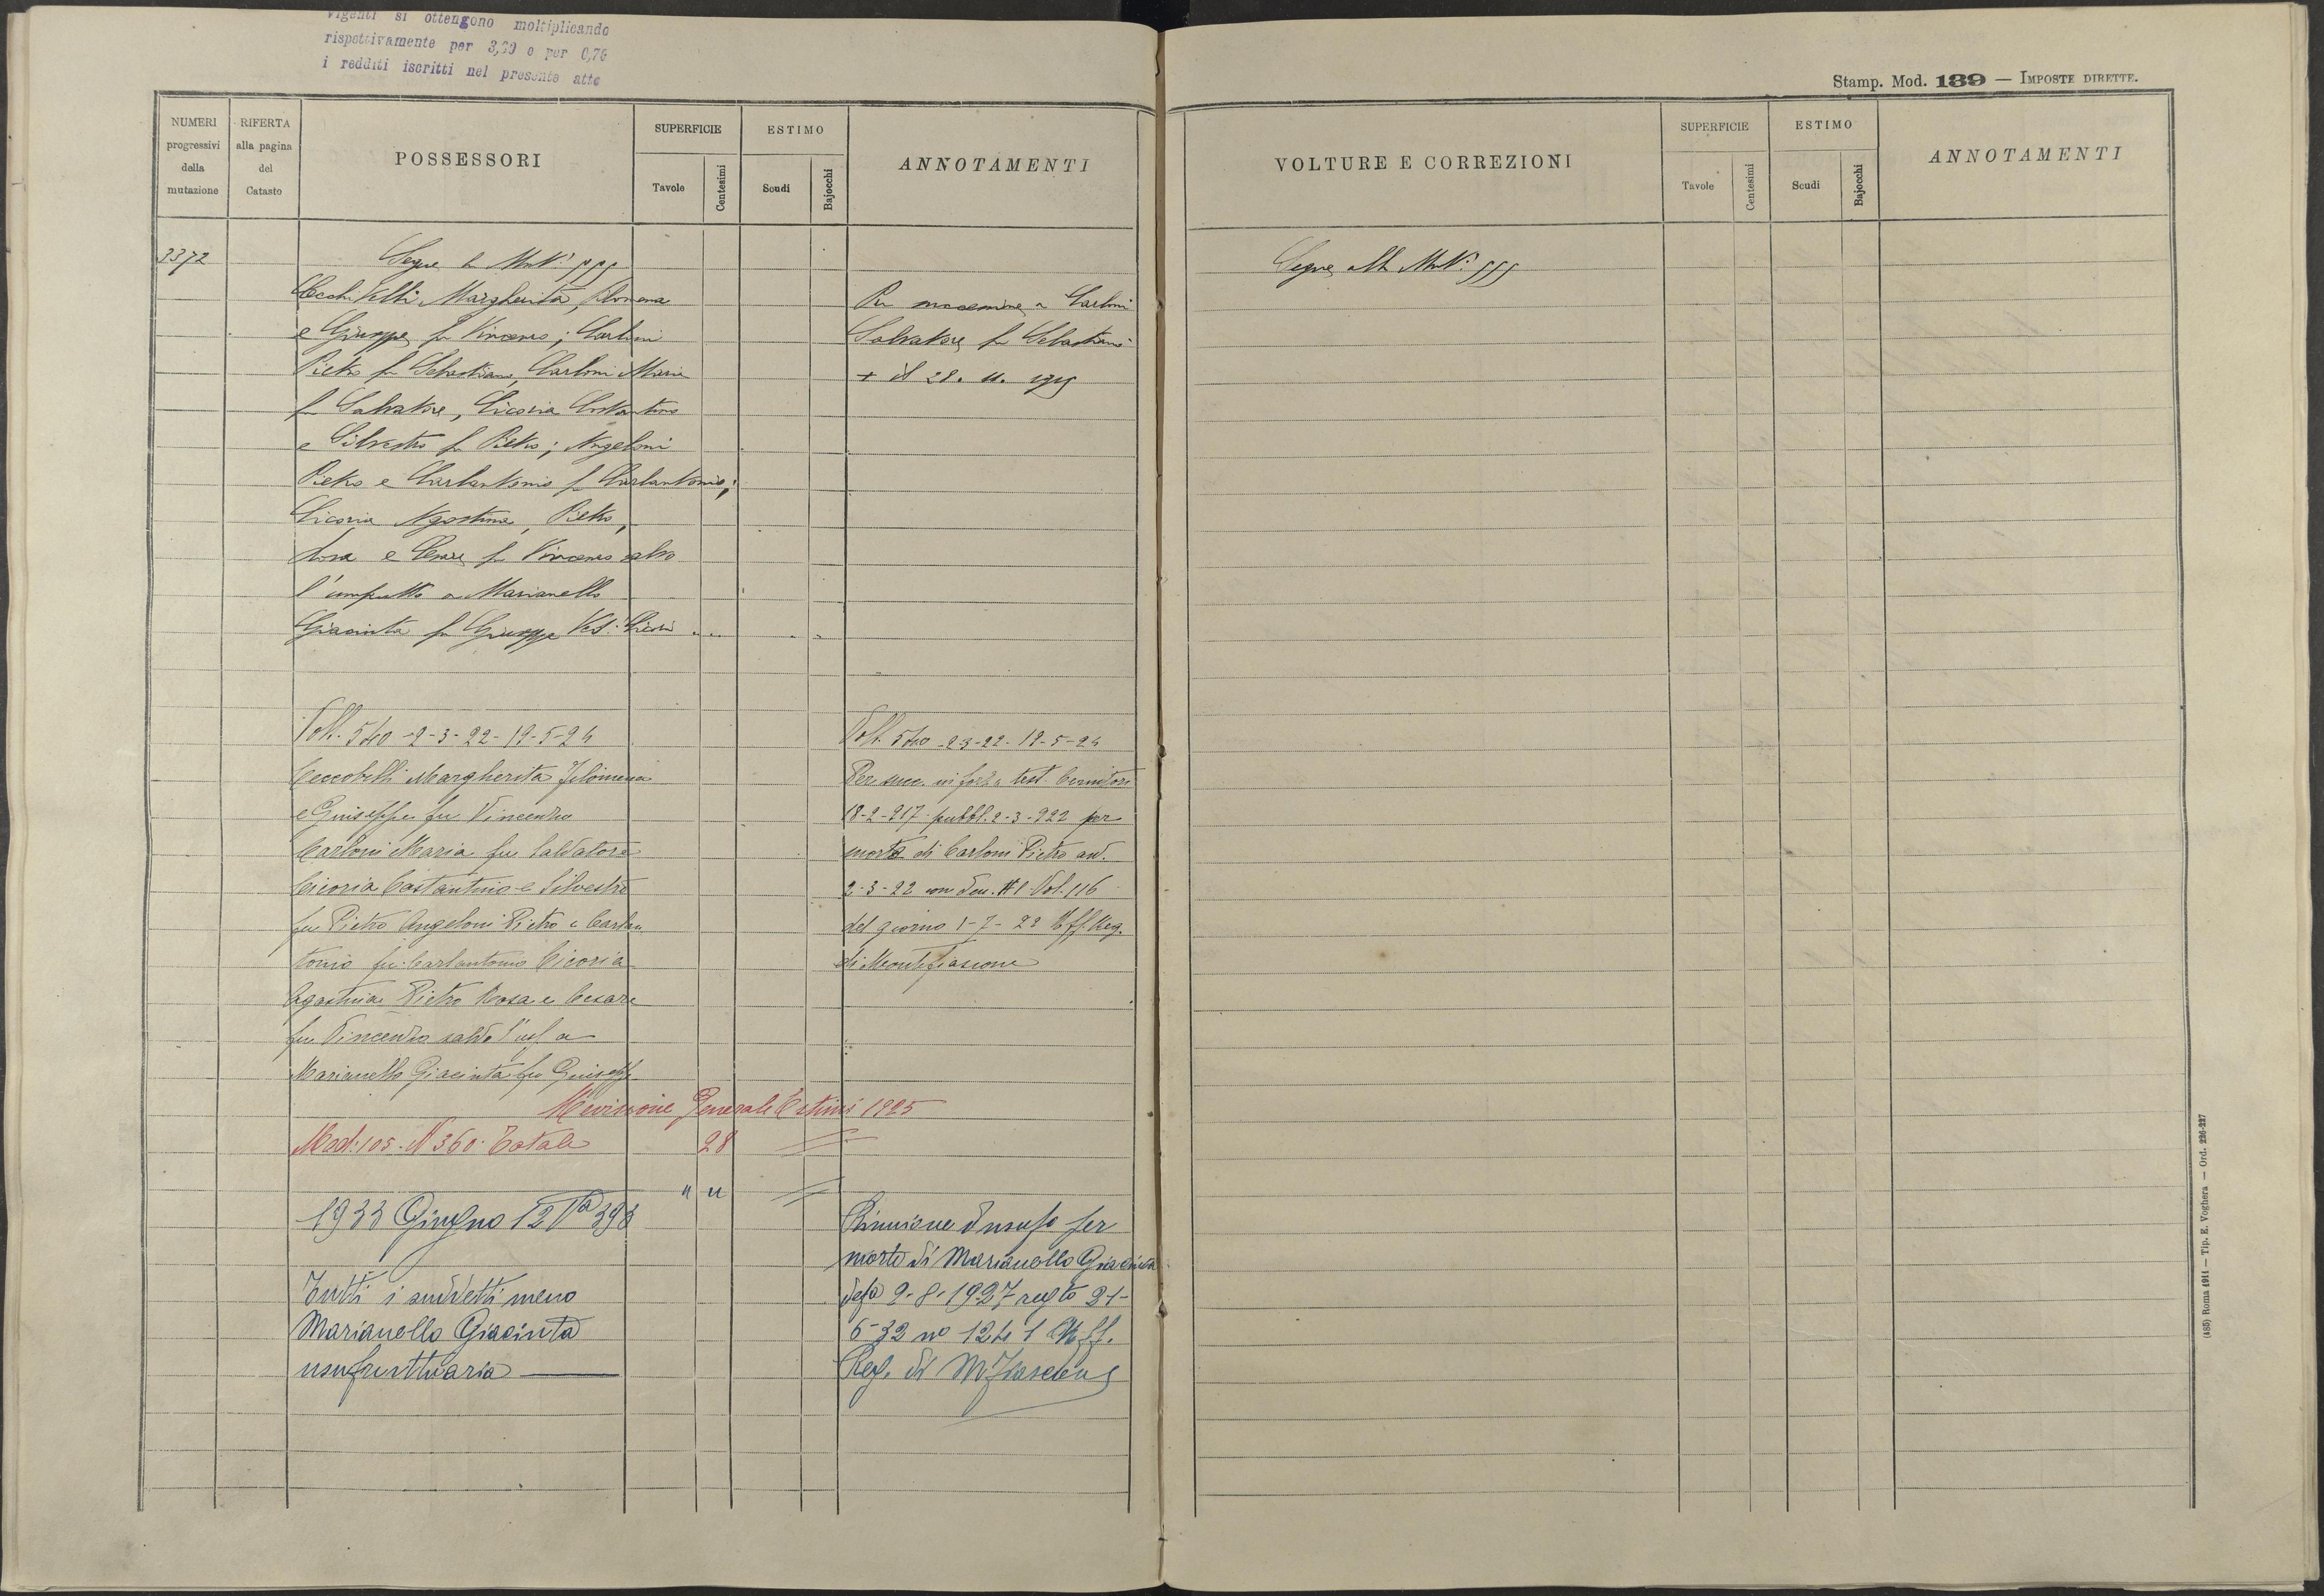 vigenti si ottengono moltiplicando
rispettivamente per 3,30 e per 0,76
i redditi iscritti nel presente atto
Stamp. Mod. 139 — IMPOSTE DIRETTE.
NUMERI progressivi della mutazione
RIFERTA alla pagina del Catasto
POSSESSORI
SUPERFICIE
Tavole
Centesimi
ESTIMO
Scudi
Bajocchi
ANNOTAMENTI
VOLTURE E CORREZIONI
SUPERFICIE
Tavole
Centesimi
ESTIMO
Scudi
Bajocchi
ANNOTAMENTI
2372
Segue
Margherita, Filomena
e Giuseppe fu Vincenzo; Carloni
Pietro fu Sebastiano, Carloni Maria
fu Salvatore, Cicoria Costantino
e Silvestro fu Pietro; Angeloni
Pietro e Carlantonio fu Carlantonio;
Cicoria Agostino, Pietro,
Rosa e Cesare fu Vincenzo salvo
l'usufrutto a Marianello
Giacinta fu Giuseppe Ved. Cicoria
Per successione a Carloni
Salvatore fu Sebastiano
+ il 28. 11. 1915
Segue
Volt. 540 - 2-3-22 - 19-5-24
Ceccobelli Margherita Filomena
e Giuseppe fu Vincenzo
Carloni Maria fu Salvatore
Cicoria Costantino e Silvestro
fu Pietro Angeloni Pietro e Carlan
tonio fu Carlantonio Cicoria
Agostina Pietro Rosa e Cesare
fu Vincenzo salvo l'usf a
Marianello Giacinta fu Giuseppe
Volt. 540 - 2-3-22 - 19-5-24
Per succ. in forza test.
18-2-917 pubbl. 2-3-922 per
morte di Carloni Pietro avv.
2-3-22 con Den. #1 Vol. 116
del giorno 1-7-22 Uff. Reg.
di Montefiascone
Revisione Generale Estimi 1925
Mod. 105. N 360. Totale 28
" "
1933 Giugno 12 Va 398
Tutti i suddetti meno
Marianello Giacinta
usufruttuaria
Riunione d'usufo per
morte di Marianello Giacinta
9-8-1927 regto 21-
6-32 no 1241 Uff.
Reg. di Mfiascone
(485) Roma 1911 — Tip. E. Voghera — Ord. 226-227